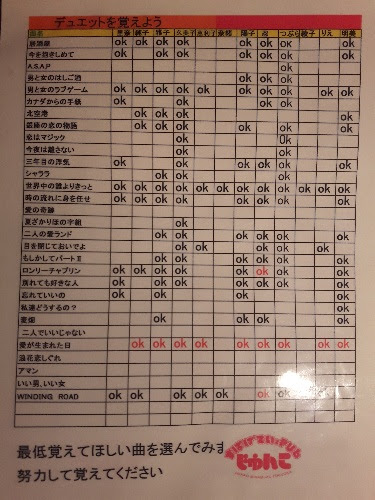 デュエットを覚えよう
曲名 里奈 桃子 雅子 久美子 恵利子 奈緒 陽子 恋 つぶら 綾子 りえ 明美
居酒屋 ok ok ok ok ok ok ok ok
今を抱きしめて ok ok ok ok ok ok ok
A.S.A.P ok ok
男と女のはしご酒 ok ok
男と女のラブゲーム ok ok ok ok ok ok ok ok ok
カナダからの手紙 ok ok ok ok
北空港 ok ok ok ok
銀座の恋の物語 ok ok ok ok ok
恋はマジック ok ok
今夜は離さない ok ok
三年目の浮気 ok ok ok ok ok ok
シャララ ok ok ok
世界中の誰よりきっと ok ok ok ok ok ok ok ok ok ok ok ok
時の流れに身を任せ ok ok ok ok ok ok ok ok
愛の奇跡
夏ざかりほの字組 ok
二人の愛ランド ok ok ok ok ok ok
目を閉じておいでよ ok ok ok ok ok
もしかしてパートⅡ ok ok ok ok ok ok
ロンリーチャプリン ok ok ok ok ok ok ok ok
別れても好きな人 ok ok ok ok ok ok ok ok
忘れていいの ok ok ok ok
私達どうするの? ok
麦畑 ok ok ok ok
二人でいいじゃない
愛が生まれた日 ok ok ok ok ok ok ok ok ok
浪花恋しぐれ
アマン
いい男、いい女
WINDING ROAD ok ok ok ok ok ok ok
最低覚えてほしい曲を選んでみま
努力して覚えてください